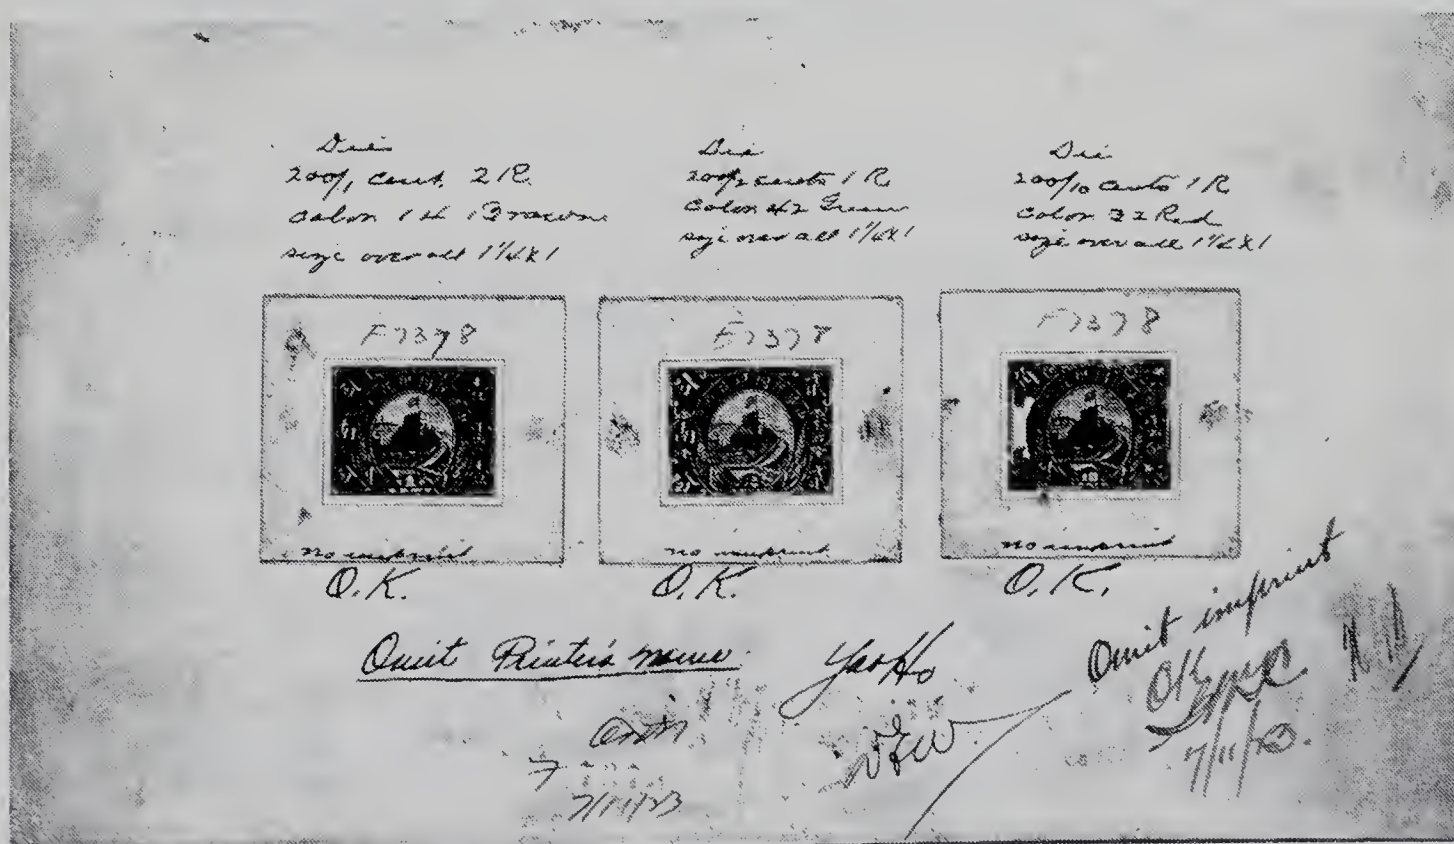 Die
200/1 cent. 2 R.
Color 14 Brown
size over all 1 1/4 x 1
Die
200/2 cents 1 R
Color 42 Green
size over all 1 1/4 x 1
Die
200/10 cents 1 R
Color 32 Red
size over all 1 1/4 x 1
F7378
F7378
F7378
no imprint
no imprint
no imprint
O.K.
O.K.
O.K.
Omit Printer's name.
Omit imprint
OK
7/11/23.
7/11/23